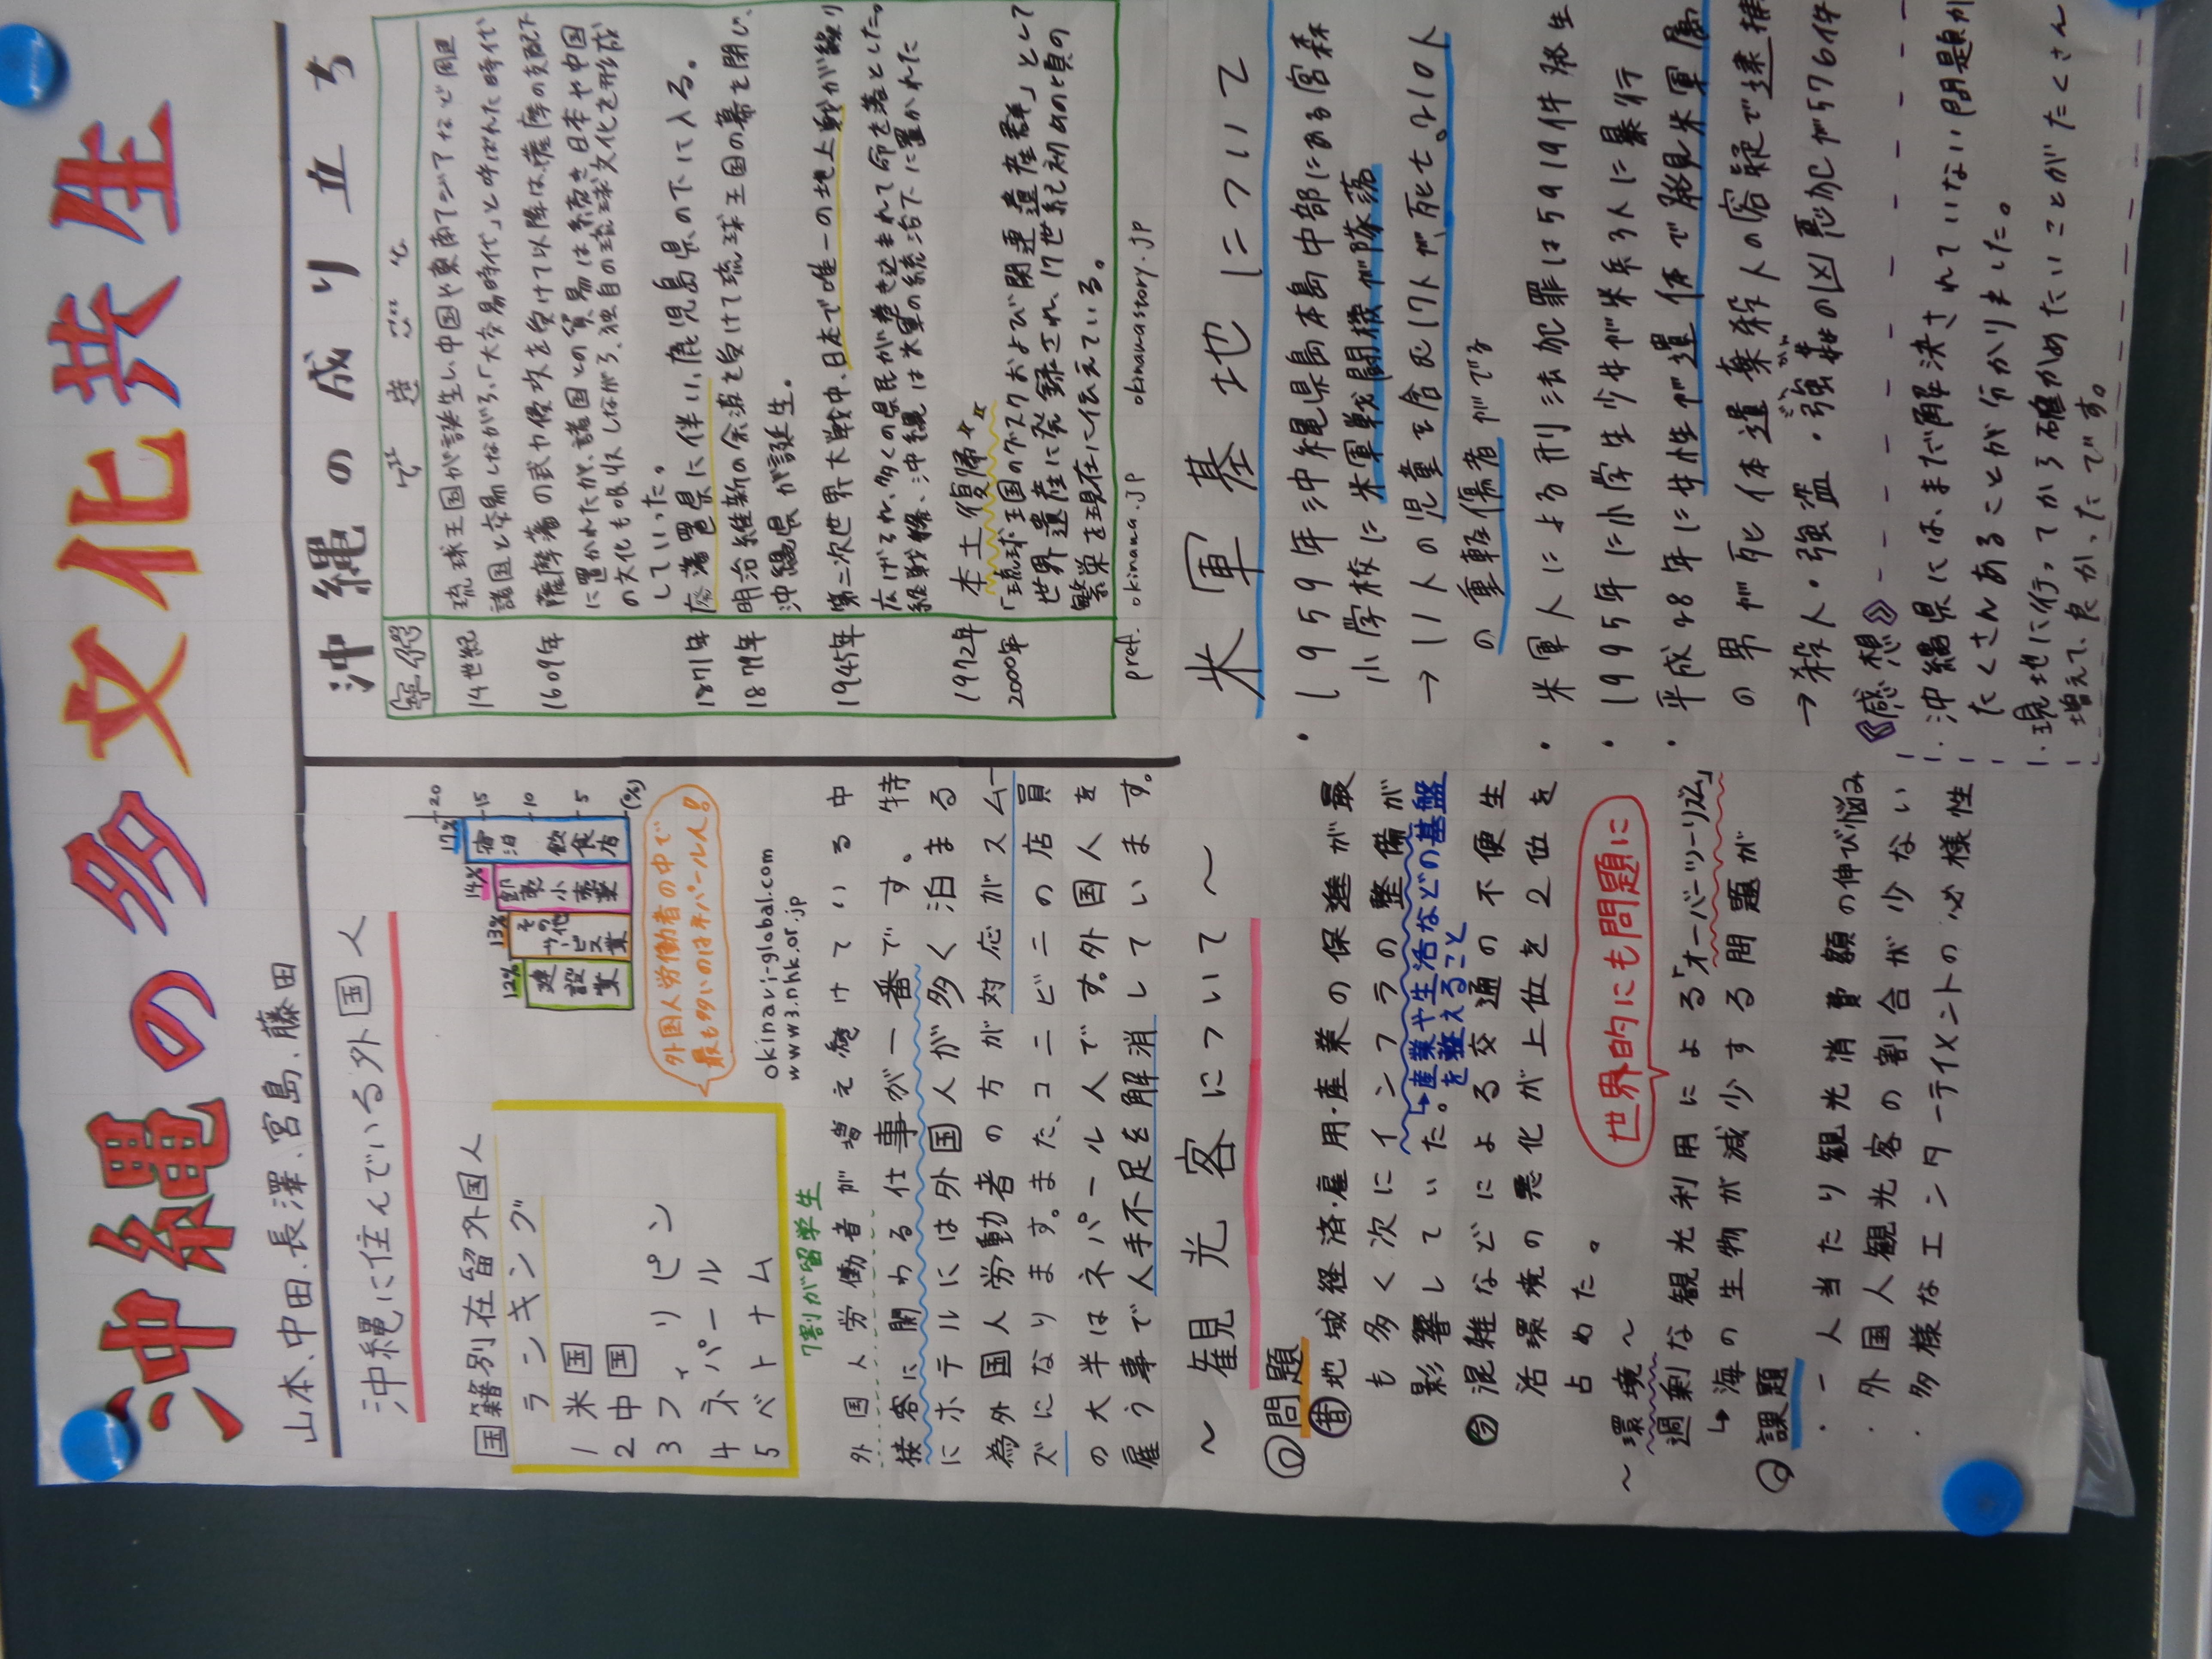 沖縄の多文化共生
山本、中田、長澤、宮島、藤田
沖縄に住んでいる外国人
国籍別在留外国人
ランキング
1 米国
2 中国
3 フィリピン
4 ネパール
5 ベトナム
20
15
10
5
(%)
12%
13%
14%
17%
建設業
その他サービス業
卸売小売業
宿泊飲食店
外国人労働者の中で
最も多いのはネパール人!
okinavi-global.com
www3.nhk.or.jp
7割が留学生
外国人労働者が増え続けている中特
接客に関わる仕事が一番です。
にホテルには外国人が多く泊まる
為外国人労動者の方が対応がスムー
ズになります。また、コンビニの店員
の大半はネパール人です。外国人を
雇う事で人手不足を解消しています。
沖縄の成り立ち
年代
14世紀
琉球王国が誕生し、中国や東南アジアなど周辺
諸国と交易しながら、「大交易時代」と呼ばれた時代
1609年
薩摩藩の武力侵攻を受けて以降は、薩摩の支配下
に置かれたが、諸国との貿易は続き日本や中国
の文化も吸収しながら、独自の琉球文化を形成
していった。
1871年
廃藩置県に伴い、鹿児島県の下に入る。
1879年
明治維新の余波を受けて琉球王国の幕を閉じ、
沖縄県が誕生。
1945年
第二次世界大戦中、日本で唯一の地上戦が繰り
広げられ、多くの県民が巻き込まれて命を落とした。
終戦後、沖縄は米軍の統治下に置かれた
1972年
本土復帰
2000年
「琉球王国のグスクおよび関連遺産群」として
世界遺産に登録され、17世紀初めの頃の
繁栄を現在に伝えている。
pref.okinawa.jp okinawastory.jp
～観光客について～
◎問題
昔 地域経済・雇用・産業の保進が最
も多く次にインフラの整備が
影響していた。↳産業や生活などの基盤
を整えること
今 混雑などによる交通の不便生
活環境の悪化が上位を2位を
占めた。
世界的にも問題に
～環境～
過剰な観光利用による「オーバーツーリズム」
↳海の生物が減少する問題が
課題
・一人当たり観光消費額の伸び悩み
・外国人観光客の割合が少ない
・多様なエンターテイメントの必様性
米軍基地について
・1959年沖縄県島本島中部にある宮森
小学校に米軍戦闘機が墜落
→11人の児童を含む17人が死亡。210人
の重軽傷者がでる
・米軍人による刑法犯罪は5919件発生
・1995年に小学生少女が米兵3人に暴行
・平成28年に女性が遺体で発見米軍属
の男が死体遺棄殺人の容疑で逮捕
→殺人・強盗・強姦の凶悪犯が576件
《感想》
・沖縄県には、まだ解決されていない問題が
たくさんあることが分かりました。
・現地に行ってから確かめたいことがたくさん
増えて、良かったです。